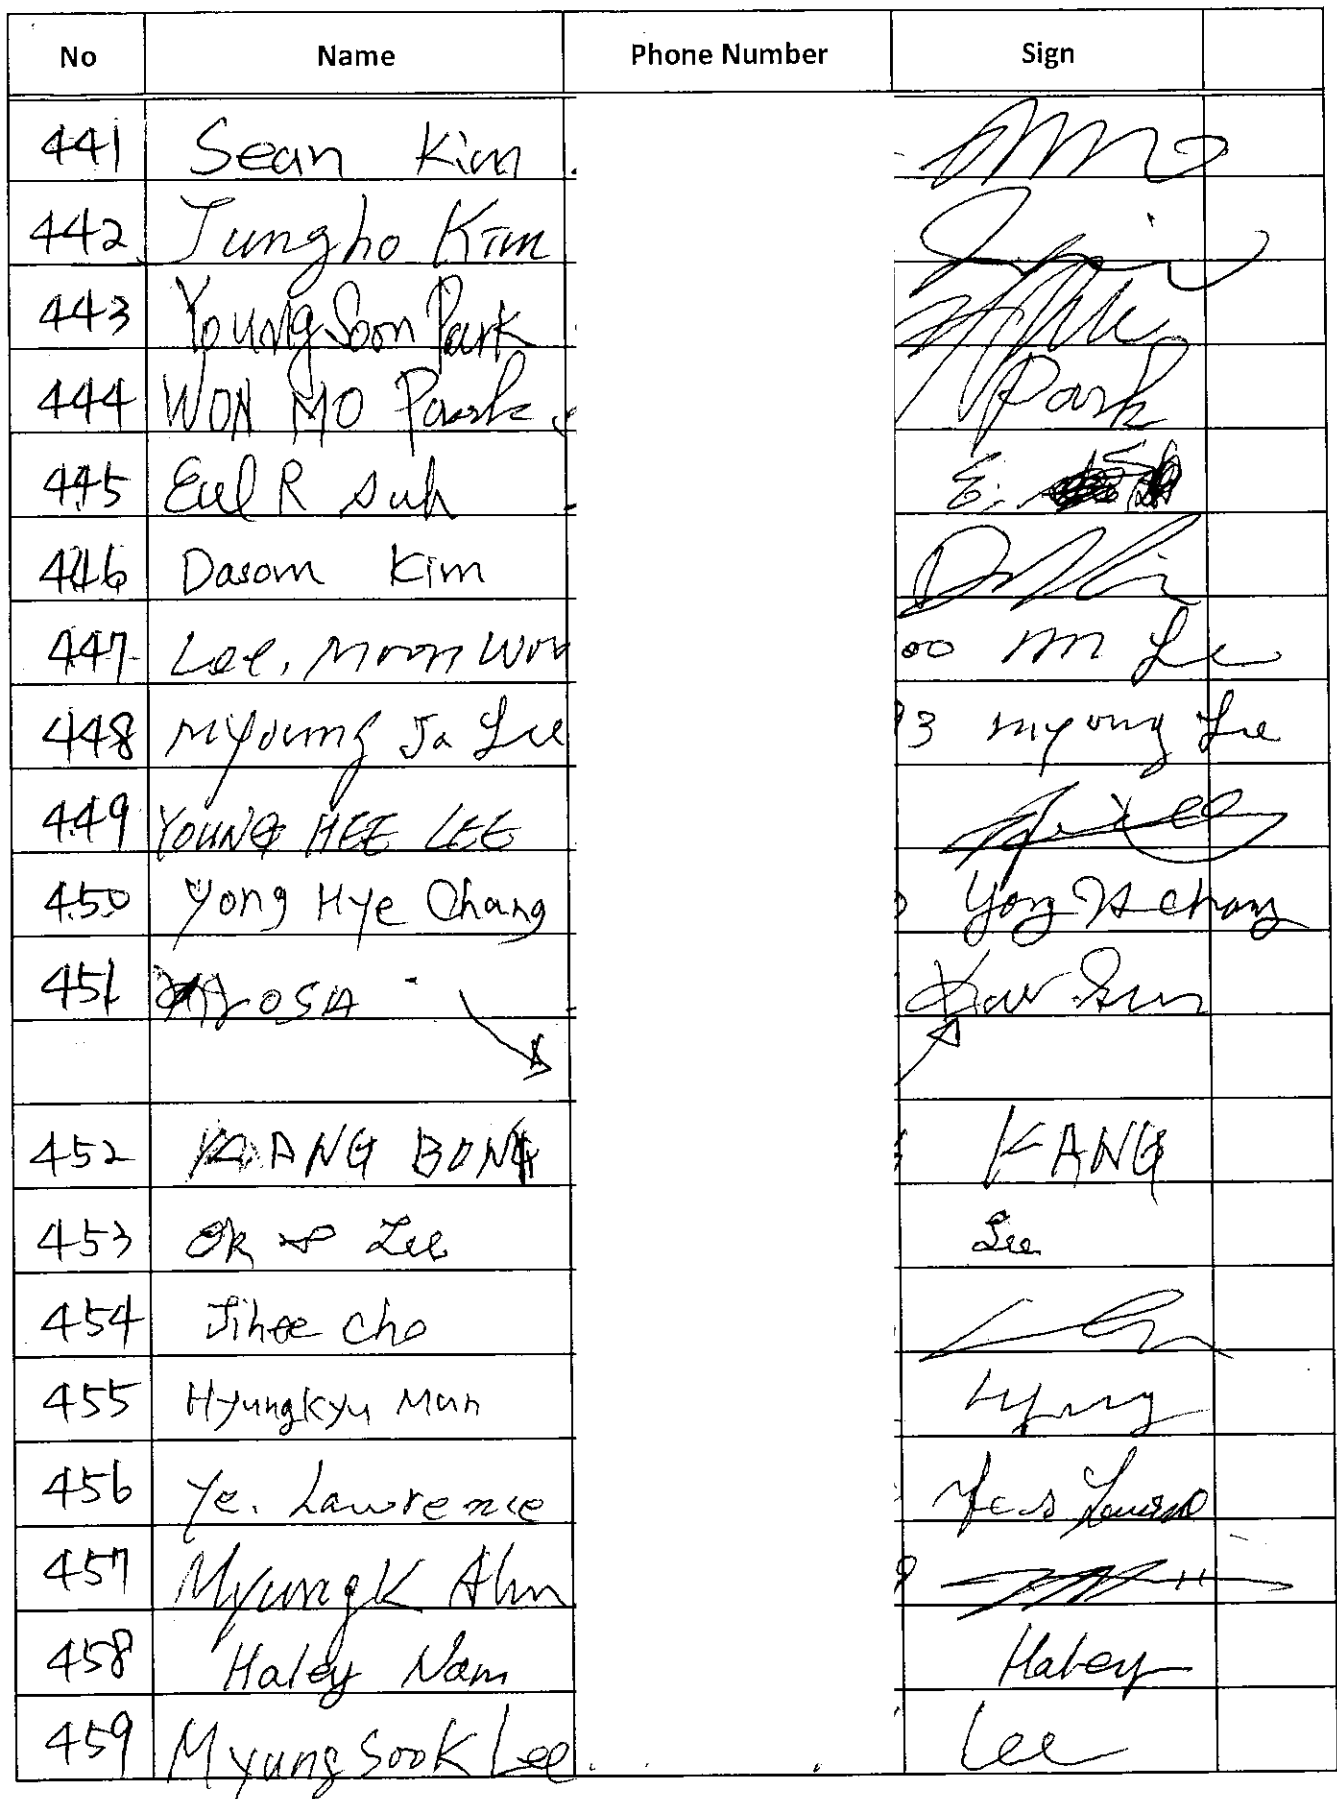 No Name Phone Number Sign
441 Sean Kim
442 Jungho Kim
443 Young Soon Park
444 WON MO Park Park
445 Eul R Suh E.
446 Dasom Kim
447 Lee, Moon Won 00 M Lee
448 Myoung Ja Lee 3 Myong Lee
449 YOUNG HEE LEE
450 Yong Hye Chang Yong H Chang
451
452 KANG BONG KANG
453 Ok Lee Lee
454 Jihee Cho
455 Hyungkyu Mun Hyung
456 Ye. Lawrence
457 Myung K Ahn
458 Haley Nam Haley
459 Myung Sook Lee Lee